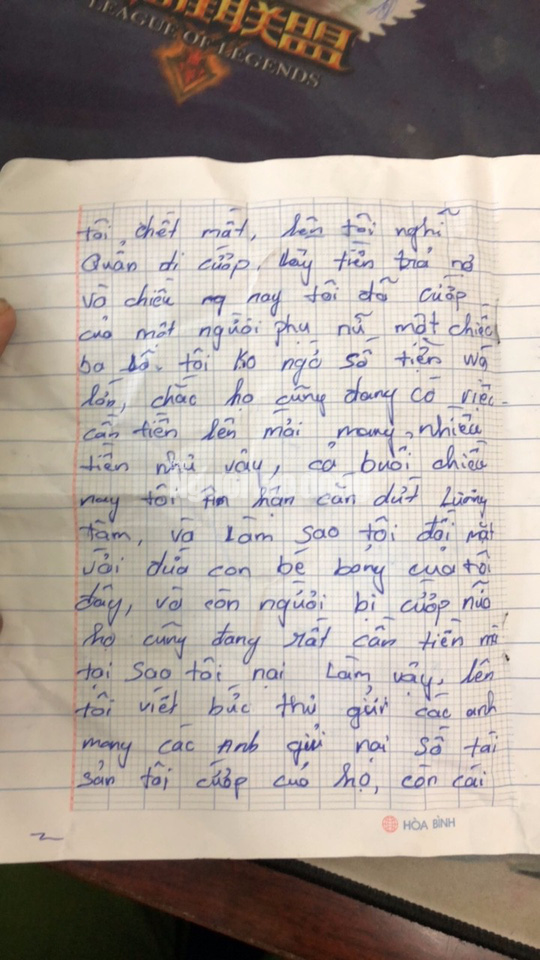 雄联盟
LEAGUE OF LEGENDS
tôi, chết mất, lên tôi nghĩ
Quẩn đi cướp, lấy tiền trả nợ
và chiều ng nay tôi đã cướp
của một người phụ nữ một chiếc
ba lô. tôi ko ngờ số tiền wá
lớn, chắc họ cũng đang có việc
cần tiền lên mới mang nhiều
tiền như vậy, cả buổi chiều
nay tôi ân hận cắn dứt Lương
tâm, và Làm sao tôi đối mặt
với đứa con bé bỏng của tôi
đây, và còn người bị cướp nữa
họ cũng đang rất cần tiền mà
tại sao tôi nại Làm vậy, lên
tôi viết bức thư gửi các anh
mong các Anh gửi nại số tài
sản tôi cướp của họ, còn cái
HÒA BÌNH
2